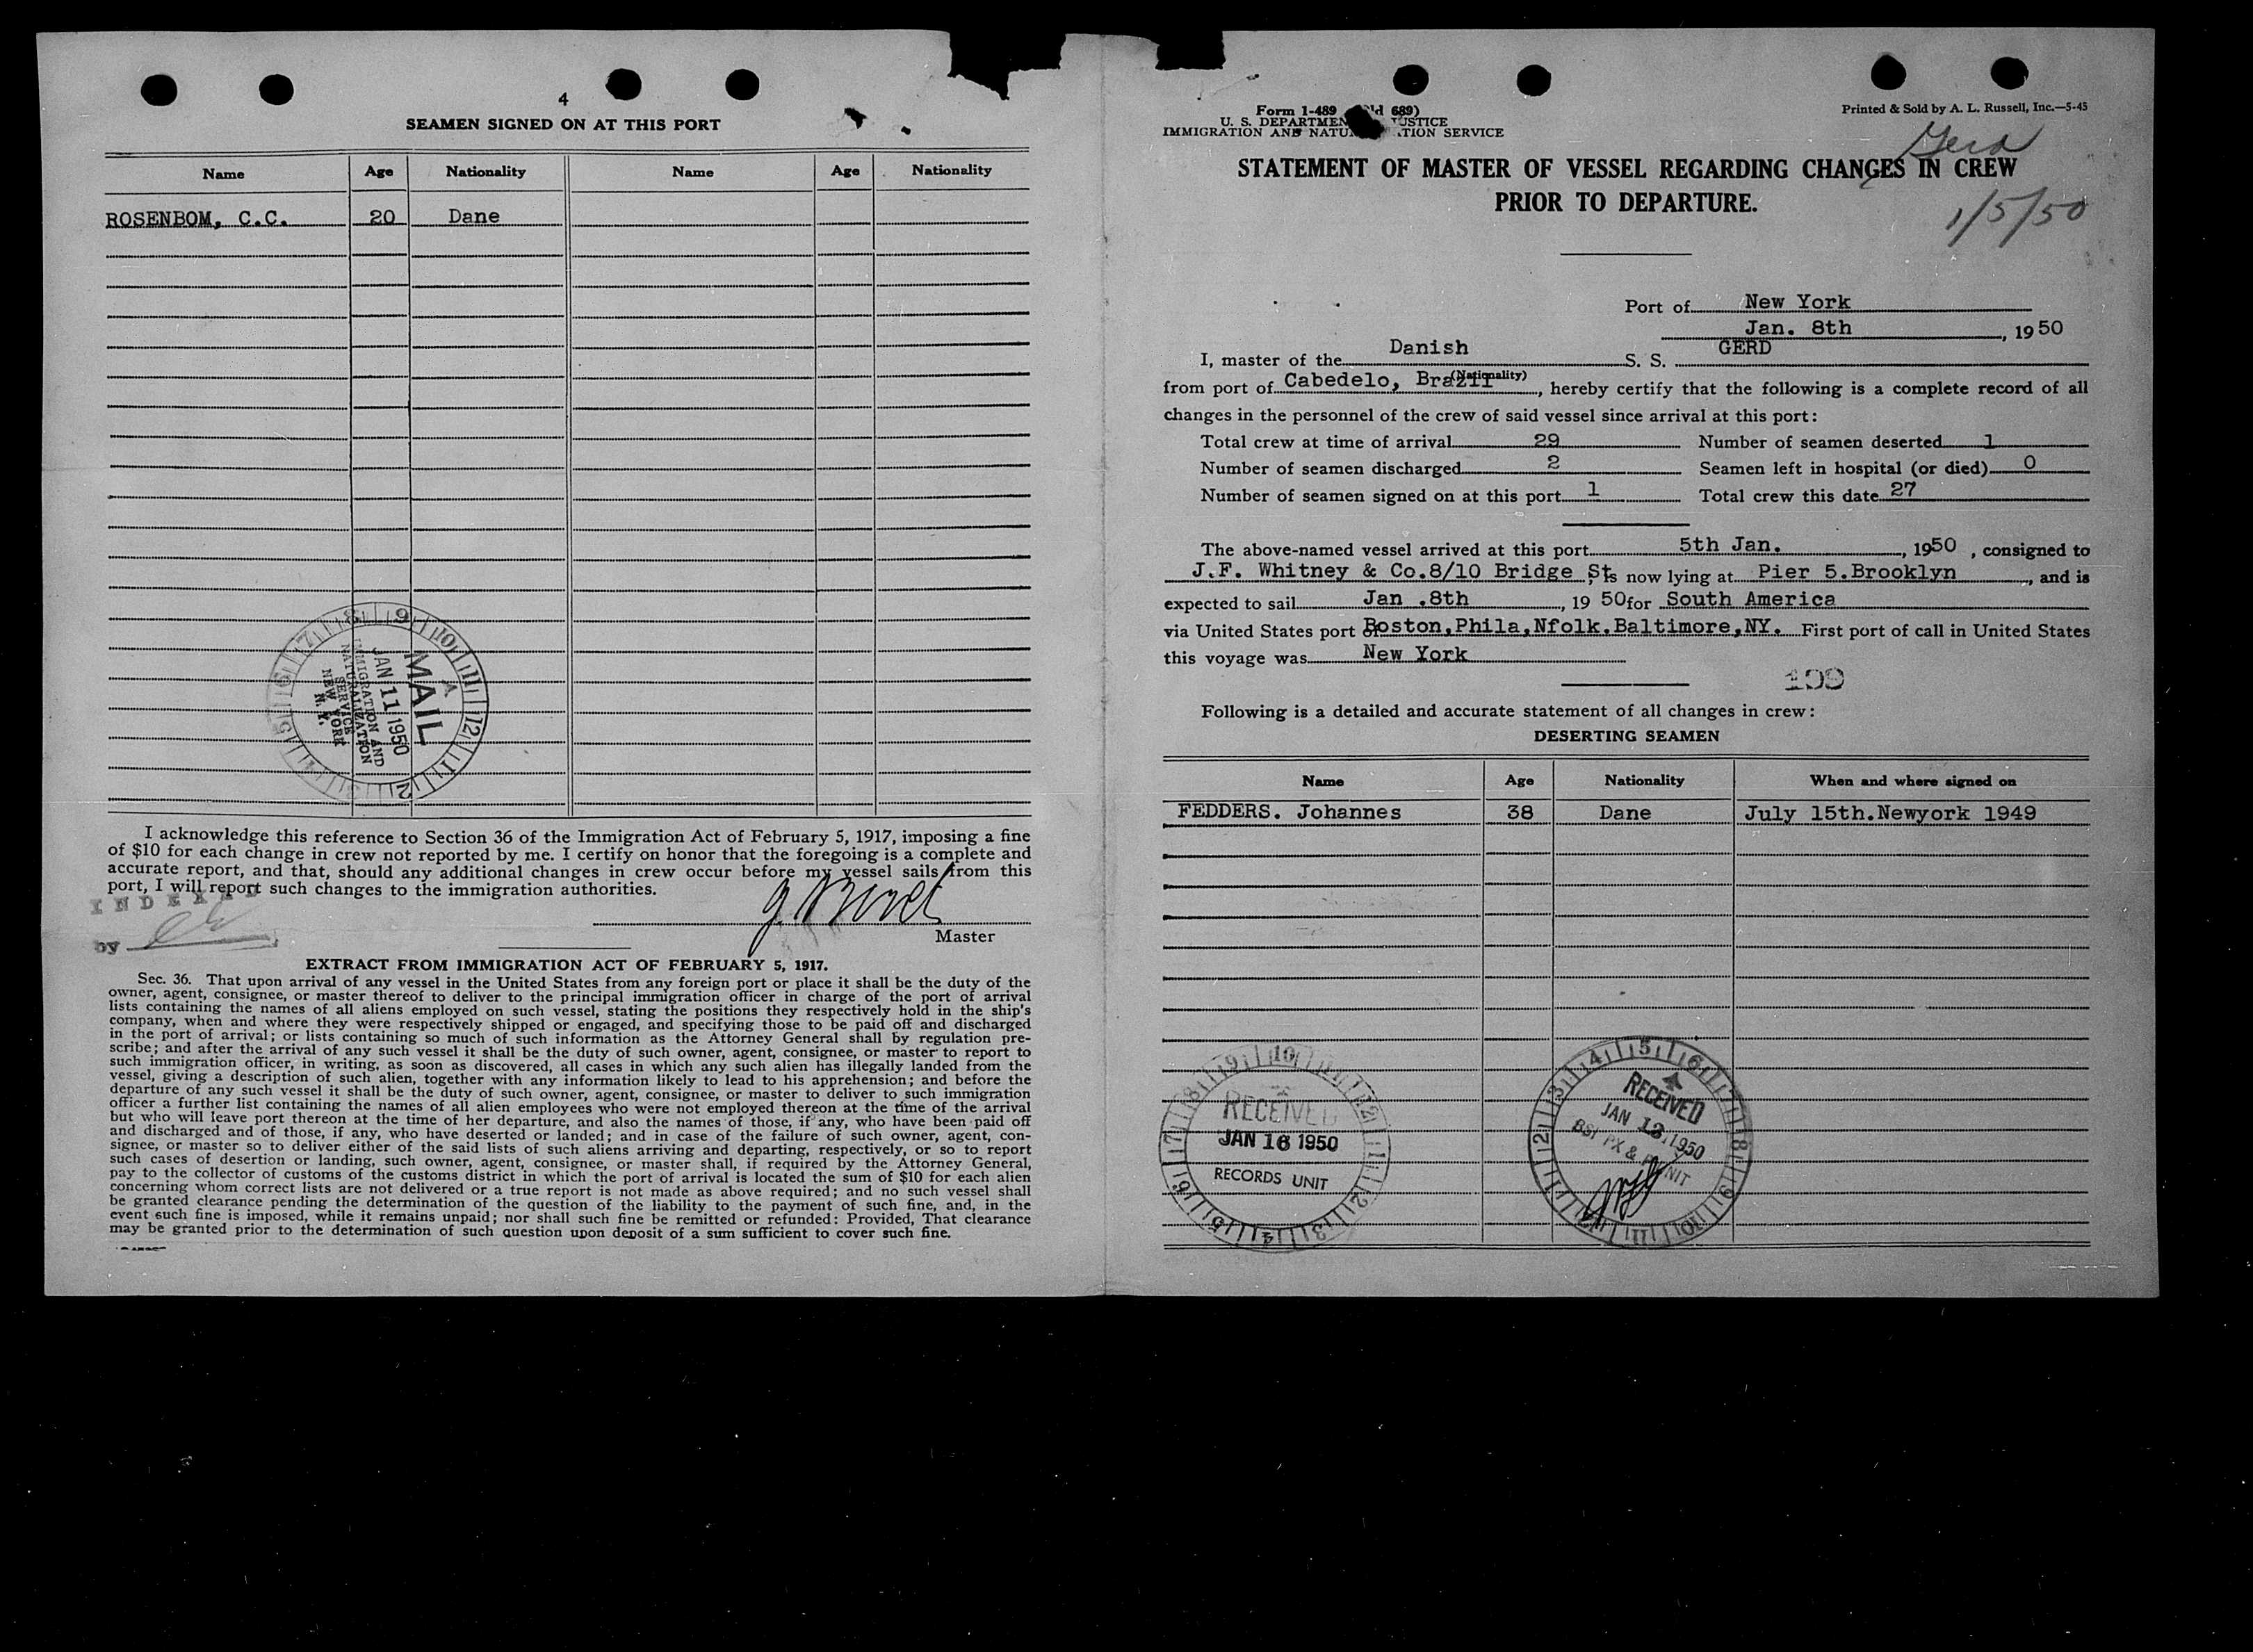 4
SEAMEN SIGNED ON AT THIS PORT
Name Age Nationality Name Age Nationality
ROSENBOM, C.C. 20 Dane
MAIL
JAN 11 1950
IMMIGRATION AND
NATURALIZATION
SERVICE
NEW YORK
N.Y.
I acknowledge this reference to Section 36 of the Immigration Act of February 5, 1917, imposing a fine
of $10 for each change in crew not reported by me. I certify on honor that the foregoing is a complete and
accurate report, and that, should any additional changes in crew occur before my vessel sails from this
port, I will report such changes to the immigration authorities.
INDEXED
by
Master
EXTRACT FROM IMMIGRATION ACT OF FEBRUARY 5, 1917.
Sec. 36. That upon arrival of any vessel in the United States from any foreign port or place it shall be the duty of the
owner, agent, consignee, or master thereof to deliver to the principal immigration officer in charge of the port of arrival
lists containing the names of all aliens employed on such vessel, stating the positions they respectively hold in the ship's
company, when and where they were respectively shipped or engaged, and specifying those to be paid off and discharged
in the port of arrival; or lists containing so much of such information as the Attorney General shall by regulation pre-
scribe; and after the arrival of any such vessel it shall be the duty of such owner, agent, consignee, or master to report to
such immigration officer, in writing, as soon as discovered, all cases in which any such alien has illegally landed from the
vessel, giving a description of such alien, together with any information likely to lead to his apprehension; and before the
departure of any such vessel it shall be the duty of such owner, agent, consignee, or master to deliver to such immigration
officer a further list containing the names of all alien employees who were not employed thereon at the time of the arrival
but who will leave port thereon at the time of her departure, and also the names of those, if any, who have been paid off
and discharged and of those, if any, who have deserted or landed; and in case of the failure of such owner, agent, con-
signee, or master so to deliver either of the said lists of such aliens arriving and departing, respectively, or so to report
such cases of desertion or landing, such owner, agent, consignee, or master shall, if required by the Attorney General,
pay to the collector of customs of the customs district in which the port of arrival is located the sum of $10 for each alien
concerning whom correct lists are not delivered or a true report is not made as above required; and no such vessel shall
be granted clearance pending the determination of the question of the liability to the payment of such fine, and, in the
event such fine is imposed, while it remains unpaid; nor shall such fine be remitted or refunded: Provided, That clearance
may be granted prior to the determination of such question upon deposit of a sum sufficient to cover such fine.
Form 1-489 689)
U. S. DEPARTMENT JUSTICE
IMMIGRATION AND NATURALIZATION SERVICE
Printed & Sold by A. L. Russell, Inc.—5-45
Gerd
STATEMENT OF MASTER OF VESSEL REGARDING CHANGES IN CREW
PRIOR TO DEPARTURE.
1/5/50
Port of New York
Jan. 8th, 1950
I, master of the Danish S. S. GERD
(Nationality)
from port of Cabedelo, Brazil, hereby certify that the following is a complete record of all
changes in the personnel of the crew of said vessel since arrival at this port:
Total crew at time of arrival 29 Number of seamen deserted 1
Number of seamen discharged 2 Seamen left in hospital (or died) 0
Number of seamen signed on at this port 1 Total crew this date 27
The above-named vessel arrived at this port 5th Jan., 1950, consigned to
J.F. Whitney & Co.8/10 Bridge St, is now lying at Pier 5.Brooklyn, and is
expected to sail Jan .8th, 1950 for South America
via United States port of Boston,Phila,Nfolk.Baltimore,NY. First port of call in United States
this voyage was New York
199
Following is a detailed and accurate statement of all changes in crew:
DESERTING SEAMEN
Name Age Nationality When and where signed on
FEDDERS. Johannes 38 Dane July 15th.Newyork 1949
RECEIVED
JAN 16 1950
RECORDS UNIT
RECEIVED
JAN 1950